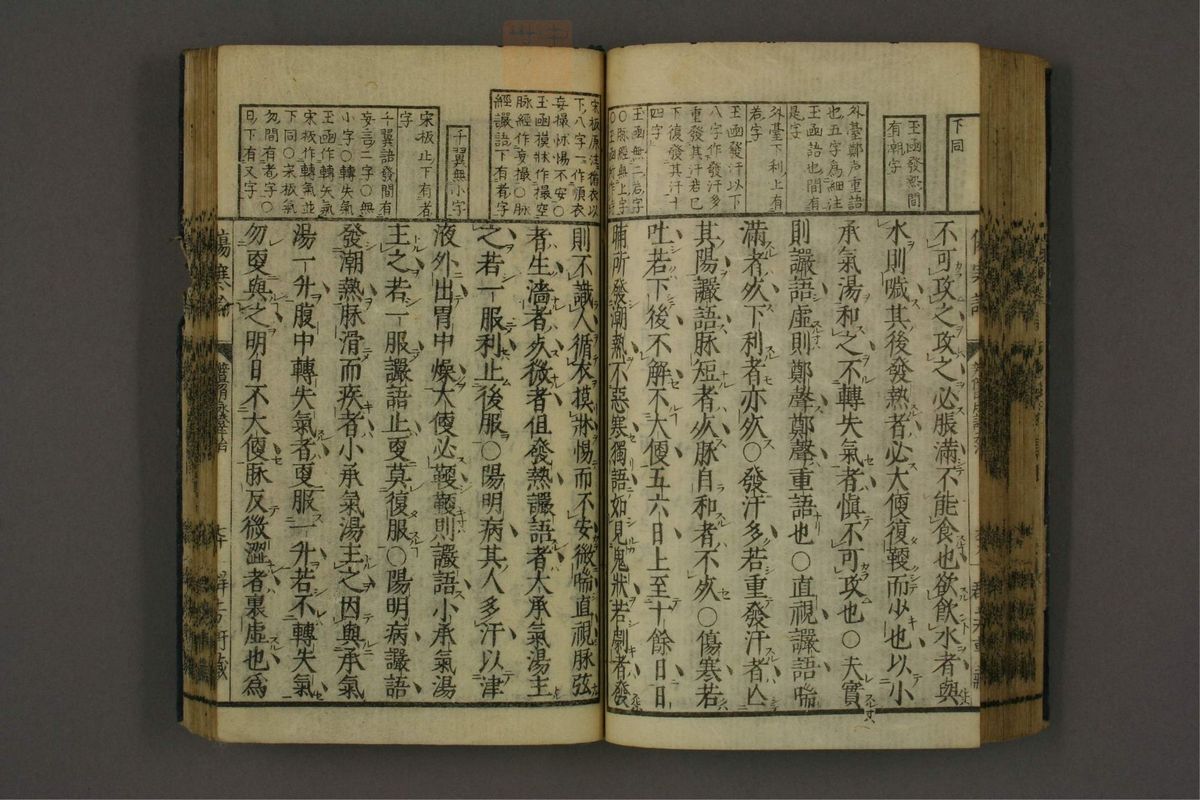 下同
玉函發熱間
有潮字
外臺鄭声重語
也五字爲細注
玉函語也間有
是字
外臺下利上有
若字
玉函發汗以下
八字作發汗多
重發其汗若已
下復發其汗十
四字
玉函無二若字
○脉經無上字
不可攻之攻之必脹滿不能食也欲飮水者與
水則噦其後發熱者必大便復鞕而少也以小
承氣湯和之不轉失氣者愼不可攻也○夫實
則讝語虛則鄭聲鄭聲重語也○直視讝語喘
滿者死下利者亦死○發汗多若重發汗者亡
其陽讝語脉短者死脉自和者不死○傷寒若
吐若下後不解不大便五六日上至十餘日日
晡所發潮熱不惡寒獨語如見鬼狀若劇者發
宋板原注循衣以
下八字一作順衣
妄撮怵惕不安○
玉函摸牀作撮空
脉經作妄撮○脉
經讝語下有者字
千翼無小字
宋板止下有者
字
千翼語發間有
妄言二字○無
小字○轉失氣
玉函作轉矢氣
宋板作轉氣並
下同○宋板氣
勿間有者字○
日下有又字
則不識人循衣摸牀惕而不安微喘直視脉弦
者生濇者死微者但發熱讝語者大承氣湯主
之若一服利止後服○陽明病其人多汗以津
液外出胃中燥大便必鞕鞕則讝語小承氣湯
主之若一服讝語止更莫復服○陽明病讝語
發潮熱脉滑而疾者小承氣湯主之因與承氣
湯一升腹中轉失氣者更服一升若不轉失氣
勿更與之明日不大便脉反微濇者裏虛也爲
傷寒論